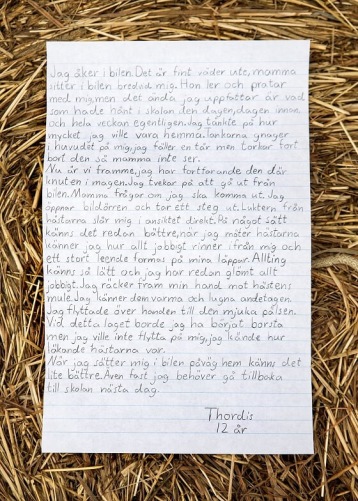 Jag åker i bilen. Det är fint väder ute, mamma
sitter i bilen bredvid mig. Hon ler och pratar
med mig, men det ända jag uppfattar är vad
som hade hänt i skolan den dagen, dagen innan
och hela veckan egentligen. Jag tänkte på hur
mycket jag ville vara hemma. Tankarna gnager
i huvudet på mig, jag fäller en tår men torkar fort
bort den så mamma inte ser.
Nu är vi framme, jag har fortfarande den där
knuten i magen. Jag tvekar på att gå ut från
bilen. Mamma frågar om jag ska komma ut. Jag
öppnar bildörren och tar ett steg ut. Lukten från
hästarna slår mig i ansiktet direkt. På något sätt
känns det redan bättre, när jag möter hästarna
känner jag hur allt jobbigt rinner ifrån mig och
ett stort leende formas på mina läppar. Allting
känns så lätt och jag har redan glömt allt
jobbigt. Jag räcker fram min hand mot hästens
mule. Jag känner dom varma och lugna andetagen.
Jag flyttade över handen till den mjuka pälsen.
Vid detta laget borde jag ha börjat borsta
men jag ville inte flytta på mig, jag kände hur
läkande hästarna var.
När jag sätter mig i bilen påväg hem känns det
lite bättre. Även fast jag behöver gå tillbaka
till skolan nästa dag.
Thordis
12 år